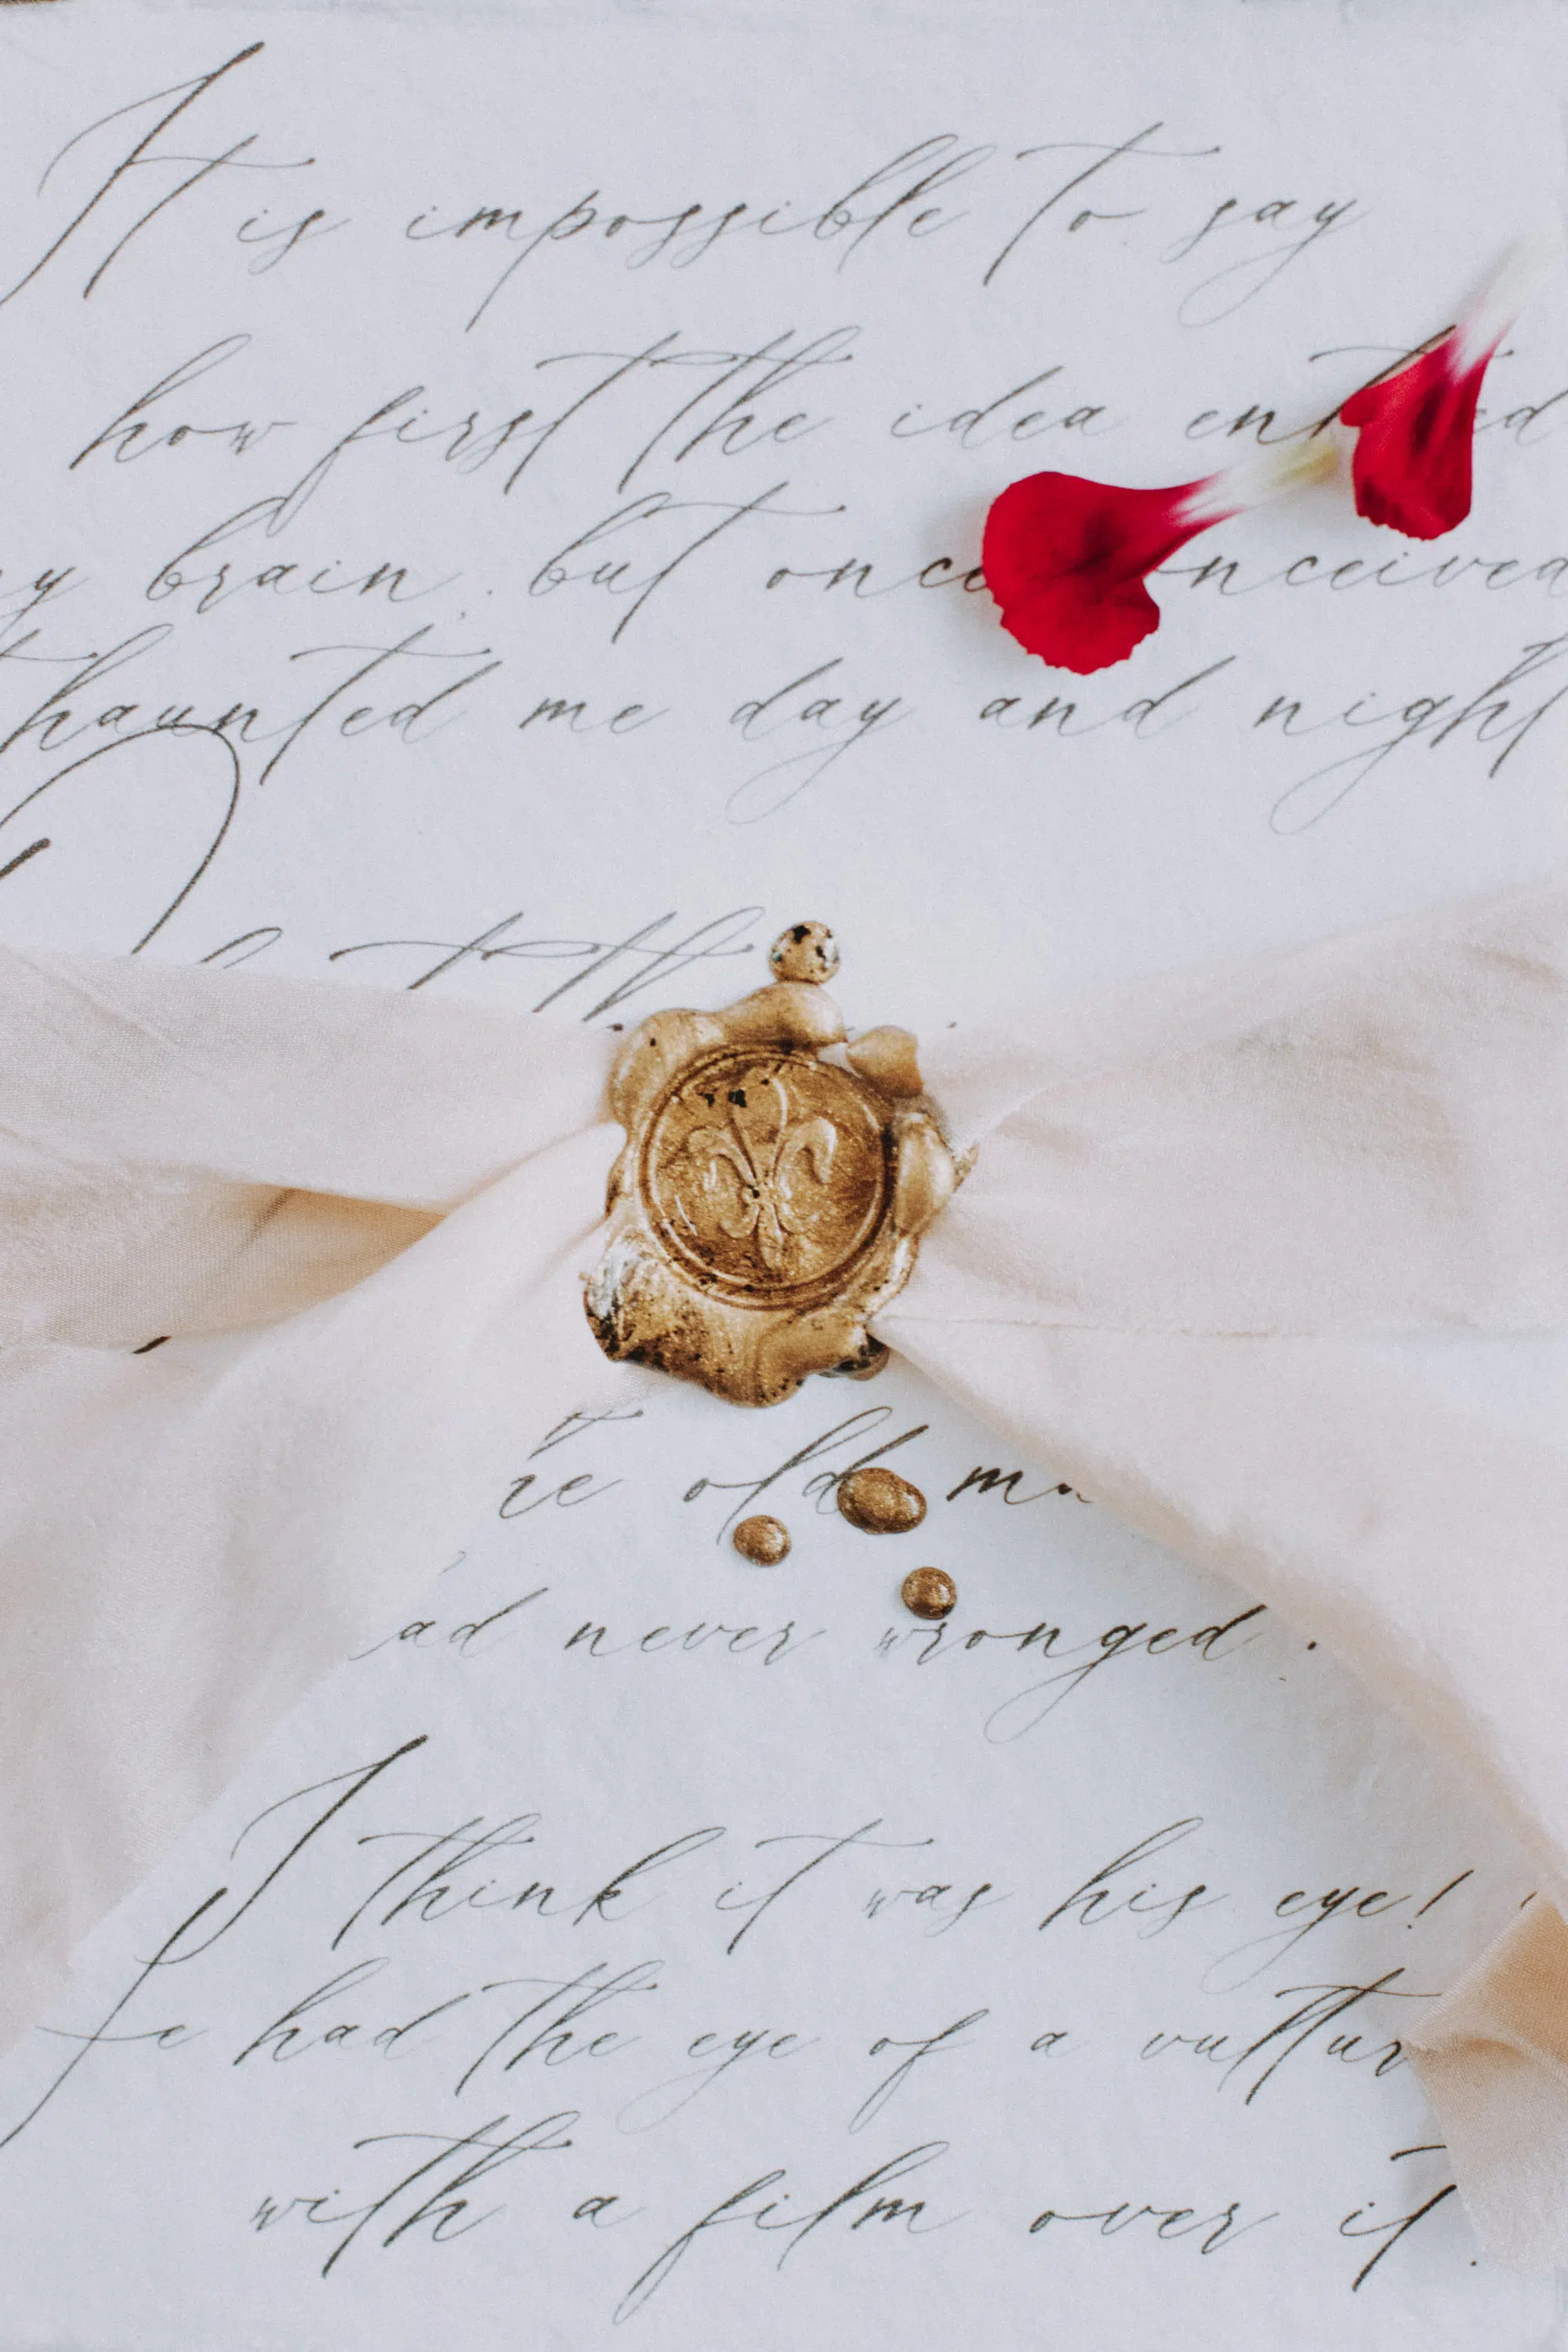 It is impossible to say
how first the idea entered
y brain. but once conceived
haunted me day and night
old
ad never wronged.
I think it was his eye!
He had the eye of a vultur
with a film over it.